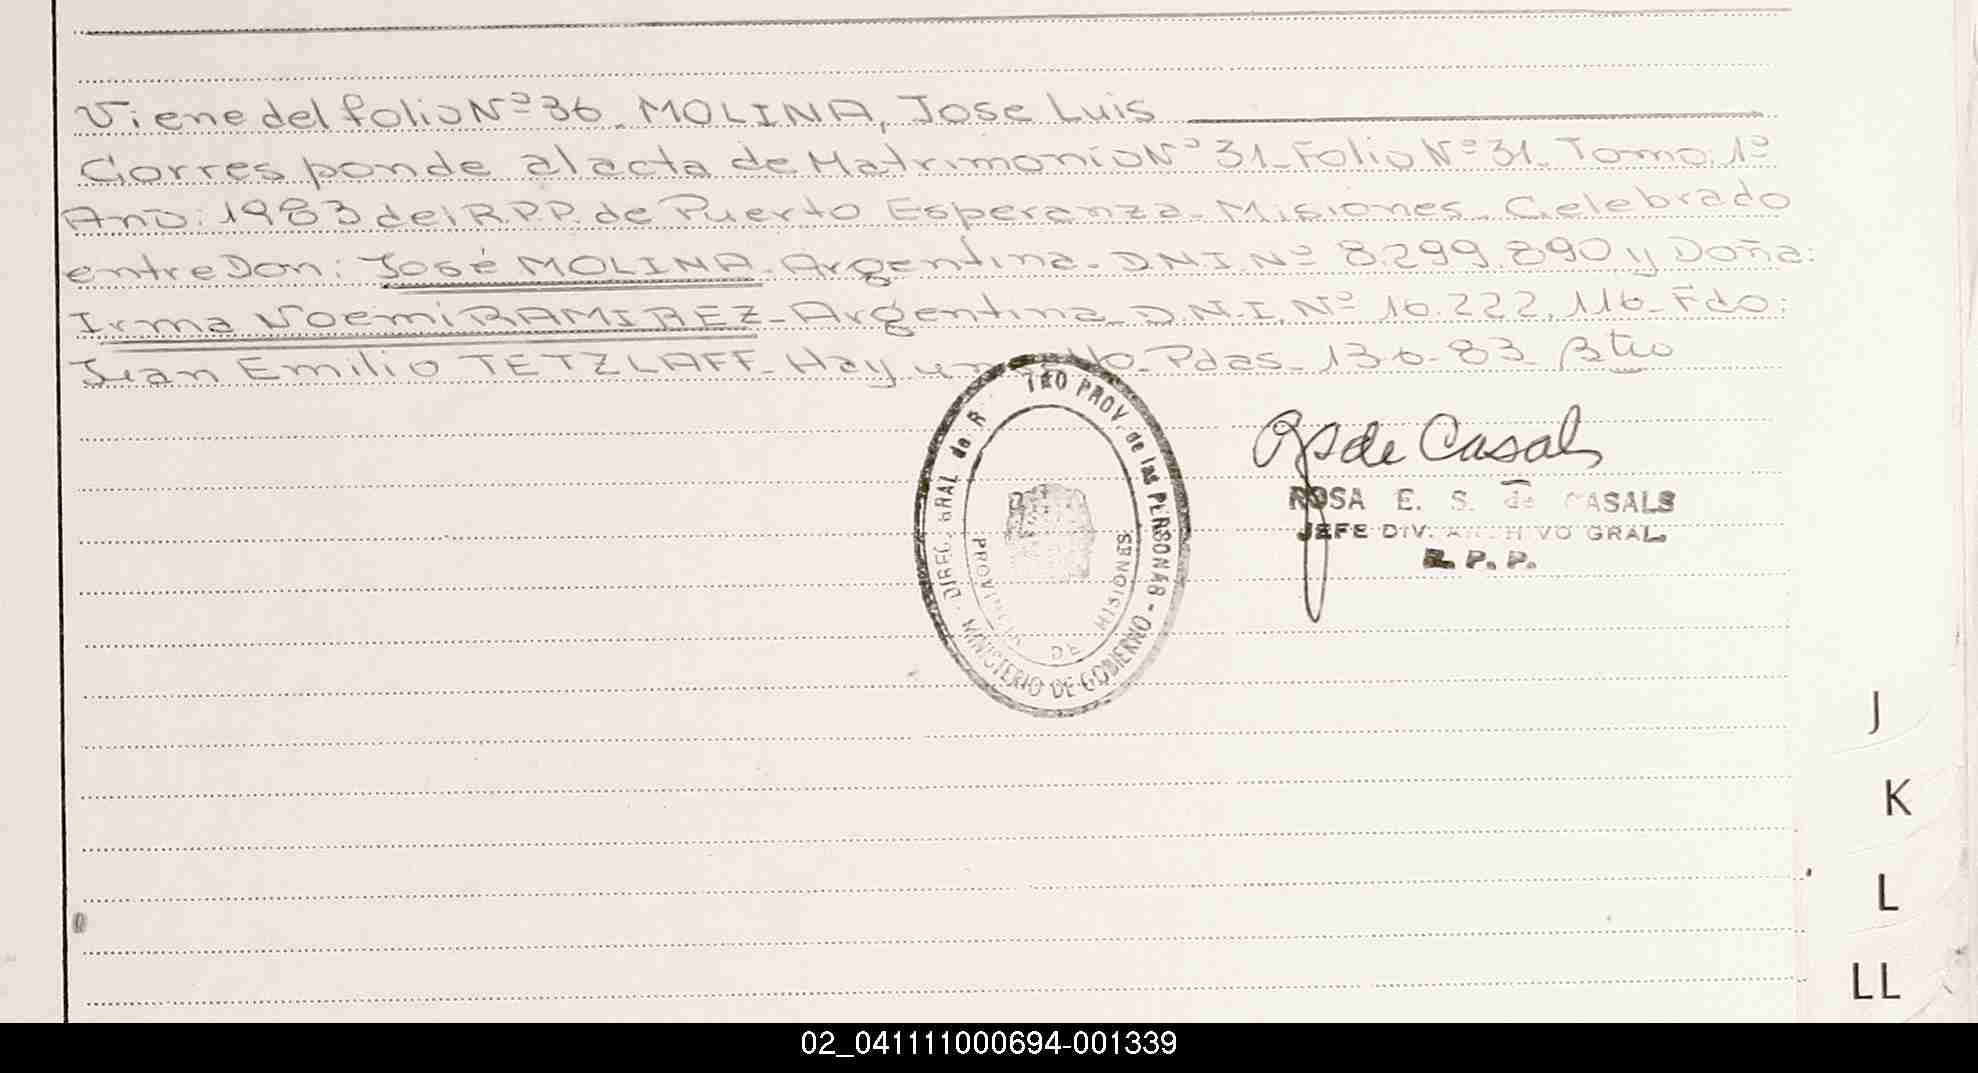 Viene del folio Nº 36. MOLINA, Jose Luis
Corresponde al acta de Matrimonio Nº 31_ Folio Nº 31_ Tomo: 1º
Año: 1983 del R.P.P. de Puerto Esperanza_ Misiones_ Celebrado
entre Don: José MOLINA_ Argentina_ D.N.I. Nº 8.299.890 y Doña:
Irma Noemi RAMIREZ_ Argentina_ D.N.I. Nº 16.222.116_ Fdo:
Juan Emilio TETZLAFF_ Hay un Pdas_ 13-6-83
DIREC. GRAL de R TRO PROV. de las PERSONAS - MINISTERIO DE GOBIERNO -
PROVINCIA DE MISIONES
de Casals
ROSA E. S. de CASALS
JEFE DIV. ARCHIVO GRAL.
R. P. P.
J
K
L
LL
02_041111000694-001339